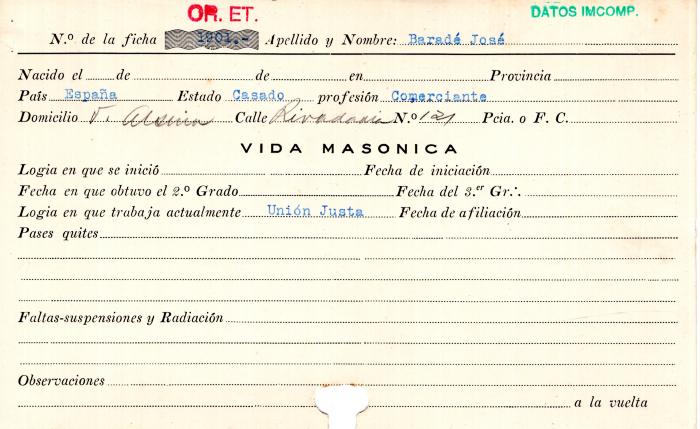 OR. ET.
DATOS IMCOMP.
N.º de la ficha 1901.- Apellido y Nombre: Baradé José
Nacido el de de en Provincia
País España Estado Casado profesión Comerciante
Domicilio V. Alsina Calle Rivadavia N.º 121 Pcia. o F. C.
VIDA MASONICA
Logia en que se inició Fecha de iniciación
Fecha en que obtuvo el 2.º Grado Fecha del 3.er Gr∴
Logia en que trabaja actualmente Unión Justa Fecha de afiliación
Pases quites
Faltas-suspensiones y Radiación
Observaciones
a la vuelta